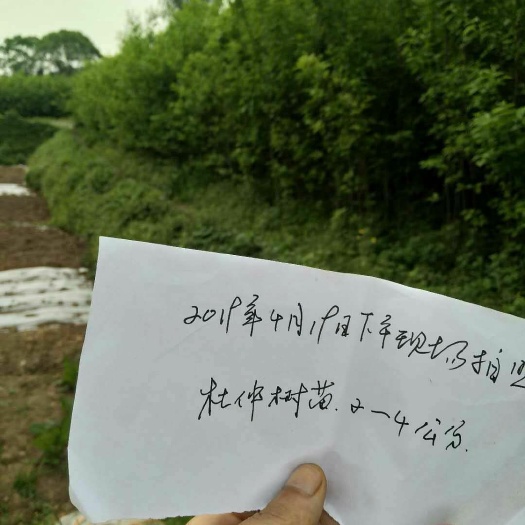 2019年4月19日下午现场拍
杜仲树苗.2一4公分.